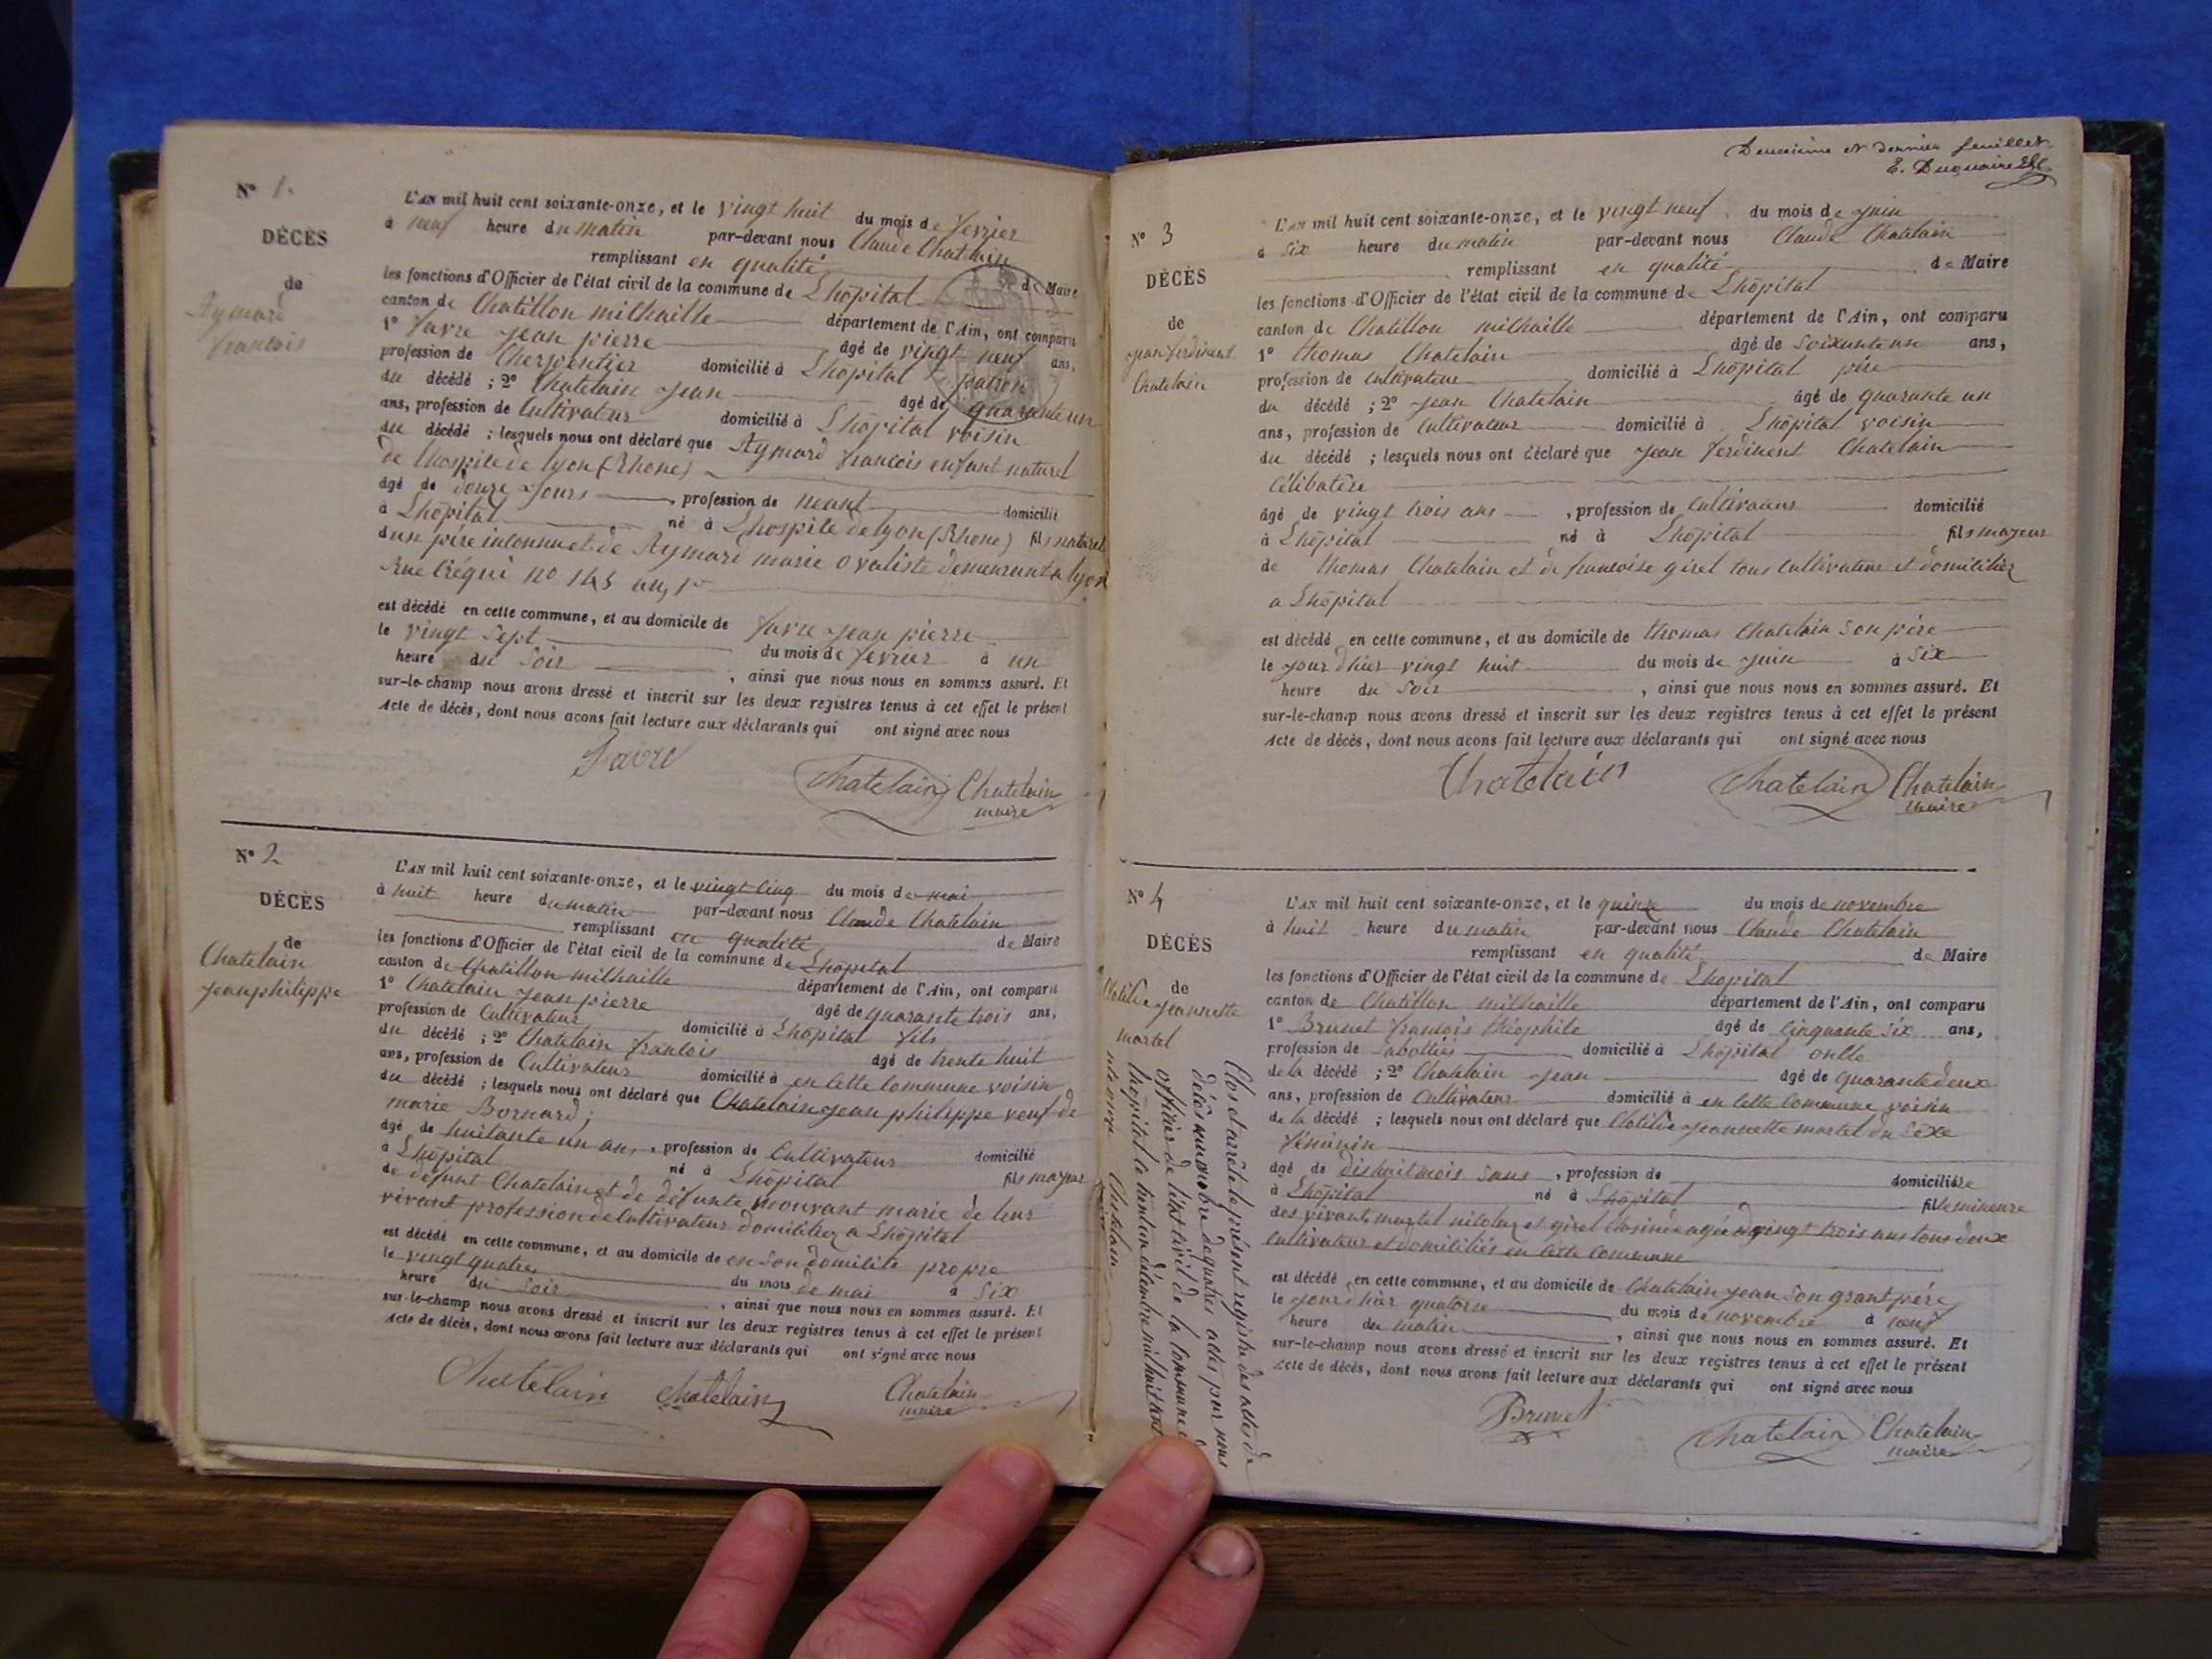 N° 1.
DÉCÈS
de
Aymard
francois
L'AN mil huit cent soixante-onze, et le vingt huit du mois de fevrier
à neuf heure du matin par-devant nous Claude Chatelain
remplissant en qualité de Maire
les fonctions d'Officier de l'état civil de la commune de Lhôpital
canton de Chatillon milhaille département de l'Ain, ont comparu
1° favre jean pierre âgé de vingt neuf ans,
profession de Cherpentier domicilié à Lhôpital patron
du décédé ; 2° Chatelain jean âgé de quarante un
ans, profession de Cultivateur domicilié à Lhôpital voisin
du décédé ; lesquels nous ont déclaré que Aymard francois enfant naturel
de lhospile de lyon (Rhone)
âgé de douze jours , profession de neant domicilié
à Lhôpital né à Lhospile de lyon (Rhone) fils naturel
dun père inconnu et de Aymard marie ovaliste demeurant a lyon
Rue Créqui n° 145 au 1r
est décédé en cette commune, et au domicile de favre jean pierre
le vingt sept du mois de fevrier à un
heure du soir , ainsi que nous nous en sommes assuré. Et
sur-le-champ nous avons dressé et inscrit sur les deux registres tenus à cet effet le présent
Acte de décès, dont nous avons fait lecture aux déclarants qui ont signé avec nous
Favre
Chatelain Chatelain
maire
N° 2
DÉCÈS
de
Chatelain
jean philippe
L'AN mil huit cent soixante-onze, et le vingt cinq du mois de mai
à huit heure du matin par-devant nous Claude Chatelain
remplissant en qualité de Maire
les fonctions d'Officier de l'état civil de la commune de Lhôpital
canton de Chatillon milhaille département de l'Ain, ont comparu
1° Chatelain jean pierre âgé de quarante trois ans,
profession de Cultivateur domicilié à Lhôpital fils
du décédé ; 2° Chatelain francois âgé de trente huit
ans, profession de Cultivateur domicilié à en cette commune voisin
du décédé ; lesquels nous ont déclaré que Chatelain jean philippe veuf de
marie Bornard ;
âgé de huitante un an, profession de Cultivateur domicilié
à Lhôpital né à Lhôpital fils majeur
de défunt Chatelain et de défunte mouvant marie de leur
vivant profession de Cultivateur domiciliez a Lhôpital
est décédé en cette commune, et au domicile de en son domicile propre
le vingt quatre du mois de mai à six
heure du soir , ainsi que nous nous en sommes assuré. Et
sur-le-champ nous avons dressé et inscrit sur les deux registres tenus à cet effet le présent
Acte de décès, dont nous avons fait lecture aux déclarants qui ont signé avec nous
Chatelain Chatelain Chatelain
maire
Deuxième et dernier feuillet
E. Duquaire
N° 3
DÉCÈS
de
jean ferdinent
Chatelain
L'AN mil huit cent soixante-onze, et le vingt neuf du mois de juin
à six heure du matin par-devant nous Claude Chatelain
remplissant en qualité de Maire
les fonctions d'Officier de l'état civil de la commune de Lhôpital
canton de Chatillon milhaille département de l'Ain, ont comparu
1° thomas Chatelain âgé de soixante un ans,
profession de cultivateur domicilié à Lhôpital père
du décédé ; 2° jean Chatelain âgé de quarante un
ans, profession de Cultivateur domicilié à Lhôpital voisin
du décédé ; lesquels nous ont déclaré que jean ferdinent Chatelain
célibatère
âgé de vingt trois ans , profession de Cultivateur domicilié
à Lhôpital né à Lhôpital fils majeur
de thomas Chatelain et de francoise girel tous Cultivateur et domiciliez
a Lhôpital
est décédé en cette commune, et au domicile de thomas Chatelain son père
le jour dhier vingt huit du mois de juin à six
heure du soir , ainsi que nous nous en sommes assuré. Et
sur-le-champ nous avons dressé et inscrit sur les deux registres tenus à cet effet le présent
Acte de décès, dont nous avons fait lecture aux déclarants qui ont signé avec nous
Chatelain Chatelain Chatelain
maire
N° 4
DÉCÈS
de
Clotilde jeannette
martel
L'AN mil huit cent soixante-onze, et le quinze du mois de novembre
à huit heure du matin par-devant nous Claude Chatelain
remplissant en qualité de Maire
les fonctions d'Officier de l'état civil de la commune de Lhopital
canton de Chatillon milhaille département de l'Ain, ont comparu
1° Brunet francois théophile âgé de cinquante six ans,
profession de sabottier domicilié à Lhôpital oncle
de la décédé ; 2° Chatelain jean âgé de quarante deux
ans, profession de Cultivateur domicilié à en cette commune voisin
de la décédé ; lesquels nous ont déclaré que Clotilde jeannette martel du sexe
féminin
âgé de dishuit mois sans , profession de domiciliée
à Lhôpital né à Lhôpital fille mineure
des vivants martel nicolas et girel agée de vingt trois ans tous deux
cultivateur et domiciliés en cette commune
est décédé en cette commune, et au domicile de Chatelain jean son grant père
le jour dhier quatorze du mois de novembre à neuf
heure du matin , ainsi que nous nous en sommes assuré. Et
sur-le-champ nous avons dressé et inscrit sur les deux registres tenus à cet effet le présent
Acte de décès, dont nous avons fait lecture aux déclarants qui ont signé avec nous
Brunet
Chatelain Chatelain
maire
Clos et arrêté le présent registre des actes de
décès au nombre de quatre actes par nous
officier de l'état civil de la commune de
lhôpital ce trente un décembre mil huit cent
Chatelain